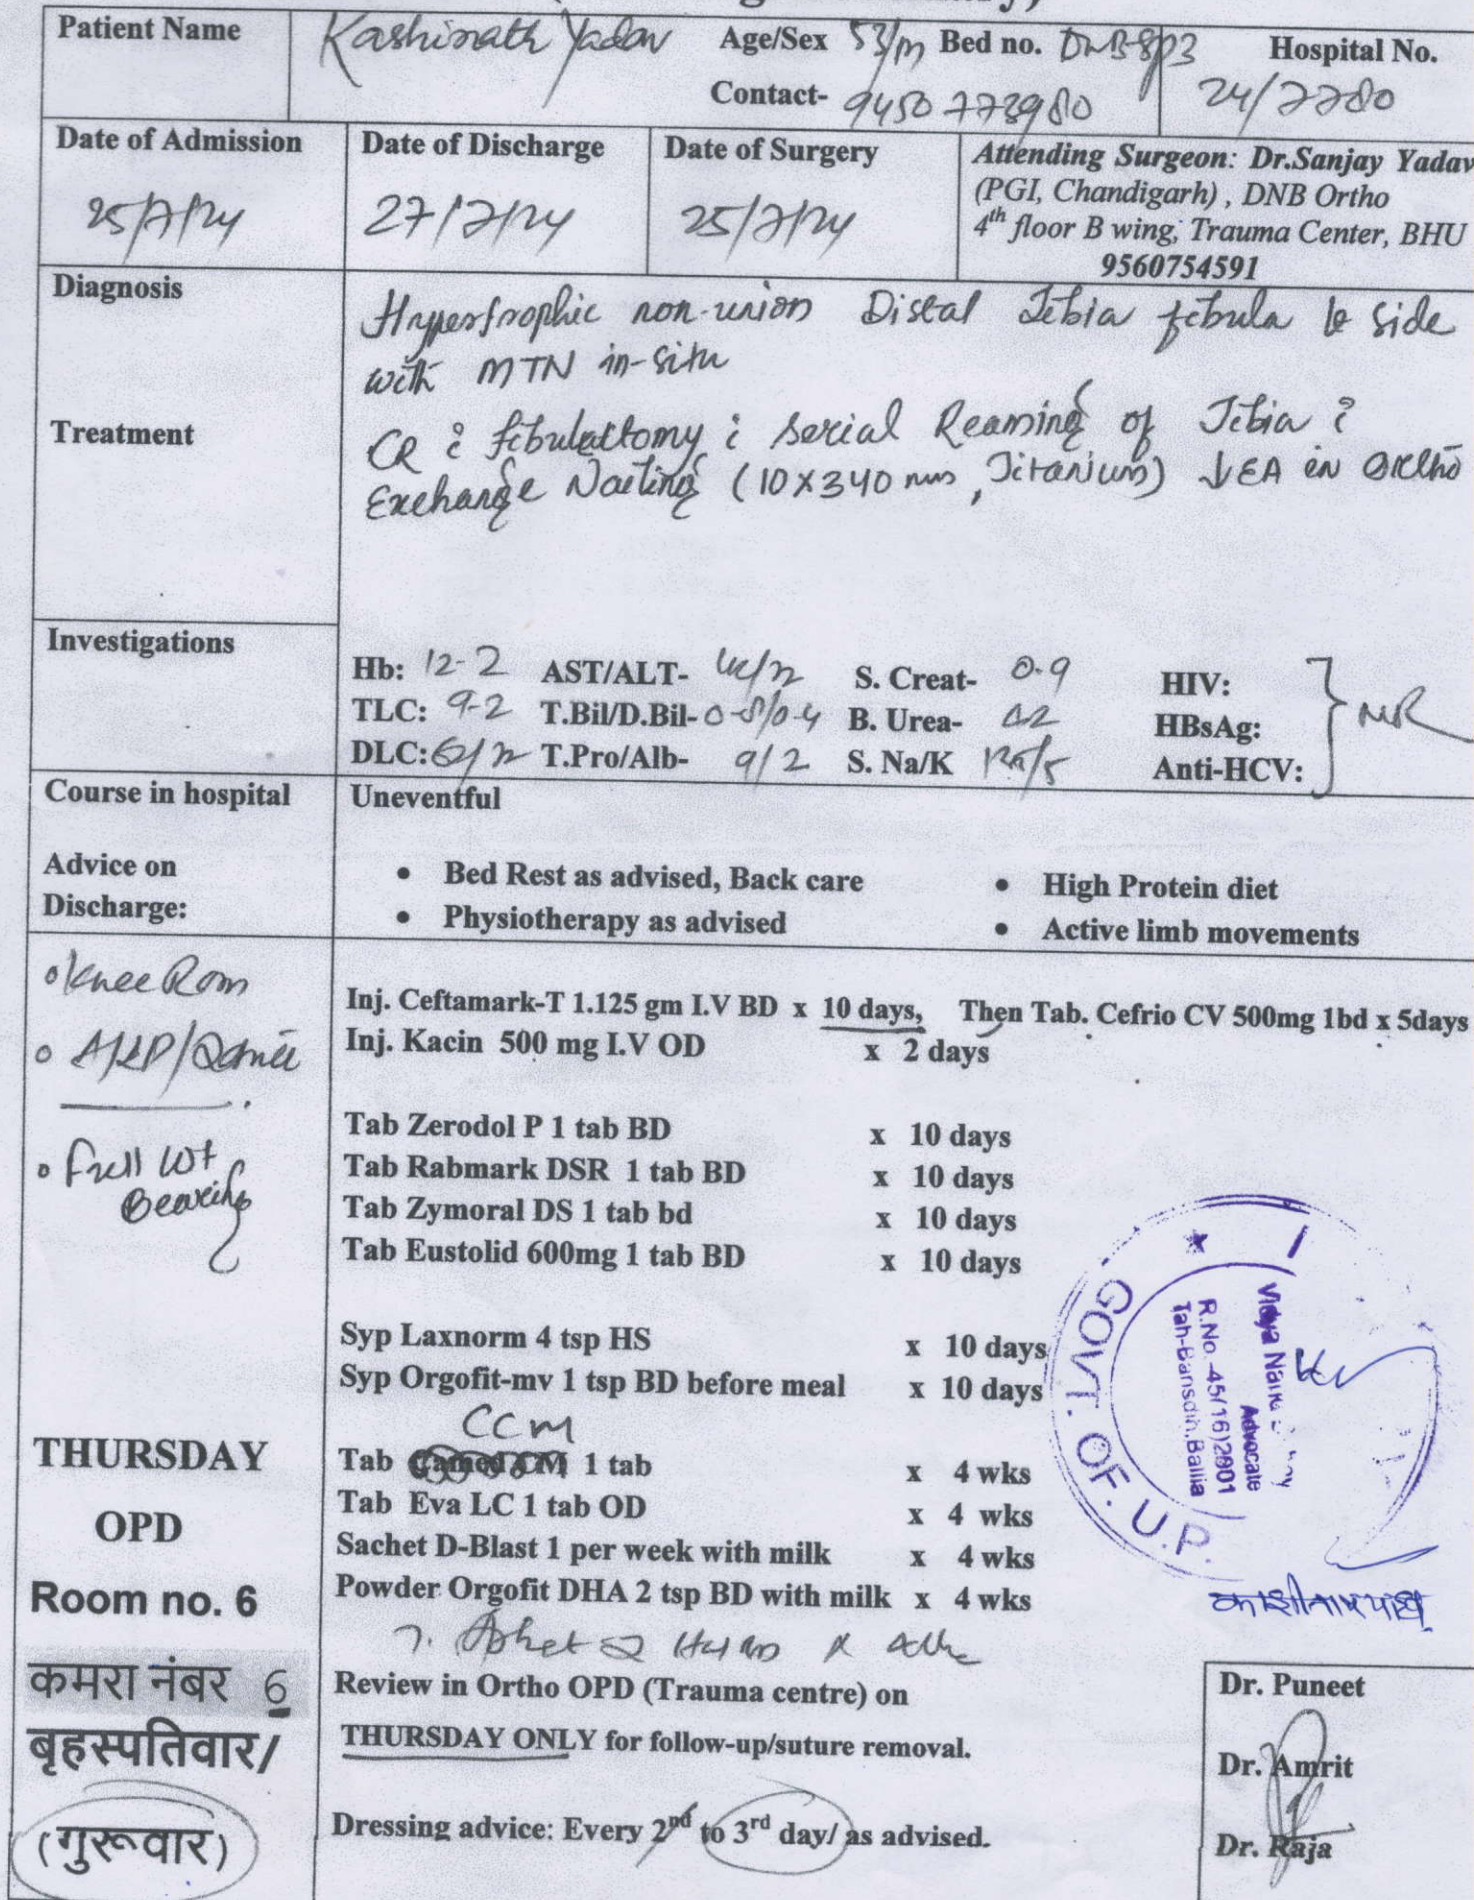 Patient Name Kashinath Yadav Age/Sex 53/m Bed no. DNB-8P3 Hospital No.
Contact- 9450773980 24/7780
Date of Admission Date of Discharge Date of Surgery Attending Surgeon: Dr.Sanjay Yadav
(PGI, Chandigarh) , DNB Ortho
25/7/24 27/7/24 25/7/24 4th floor B wing, Trauma Center, BHU
9560754591
Diagnosis
Hypertrophic non-union Distal Tibia fibula side
with MTN in-situ
Treatment
CR fibulectomy serial Reaming of Tibia
Exchange Nailing (10X340 mm, Titanium) ↓EA in Ortho
Investigations
Hb: 12-2 AST/ALT- S. Creat- 0.9 HIV:
TLC: 9-2 T.Bil/D.Bil- B. Urea- HBsAg: NR
DLC: T.Pro/Alb- 9/2 S. Na/K Anti-HCV:
Course in hospital Uneventful
Advice on
Discharge:
• Bed Rest as advised, Back care • High Protein diet
• Physiotherapy as advised • Active limb movements
• Knee Rom
• Full Wt
Bearing
Inj. Ceftamark-T 1.125 gm I.V BD x 10 days, Then Tab. Cefrio CV 500mg 1bd x 5days
Inj. Kacin 500 mg I.V OD x 2 days
Tab Zerodol P 1 tab BD x 10 days
Tab Rabmark DSR 1 tab BD x 10 days
Tab Zymoral DS 1 tab bd x 10 days
Tab Eustolid 600mg 1 tab BD x 10 days
Syp Laxnorm 4 tsp HS x 10 days
Syp Orgofit-mv 1 tsp BD before meal x 10 days
CCM
Tab 1 tab x 4 wks
Tab Eva LC 1 tab OD x 4 wks
Sachet D-Blast 1 per week with milk x 4 wks
Powder Orgofit DHA 2 tsp BD with milk x 4 wks
Review in Ortho OPD (Trauma centre) on
THURSDAY ONLY for follow-up/suture removal.
Dressing advice: Every 2nd to 3rd day/ as advised.
THURSDAY
OPD
Room no. 6
कमरा नंबर 6
बृहस्पतिवार/
(गुरूवार)
GOVT. OF. U.P.
Vidya
Advocate
R.No.-45(16)2001
Tah-Bansdih,Ballia
Dr. Puneet
Dr. Amrit
Dr. Raja